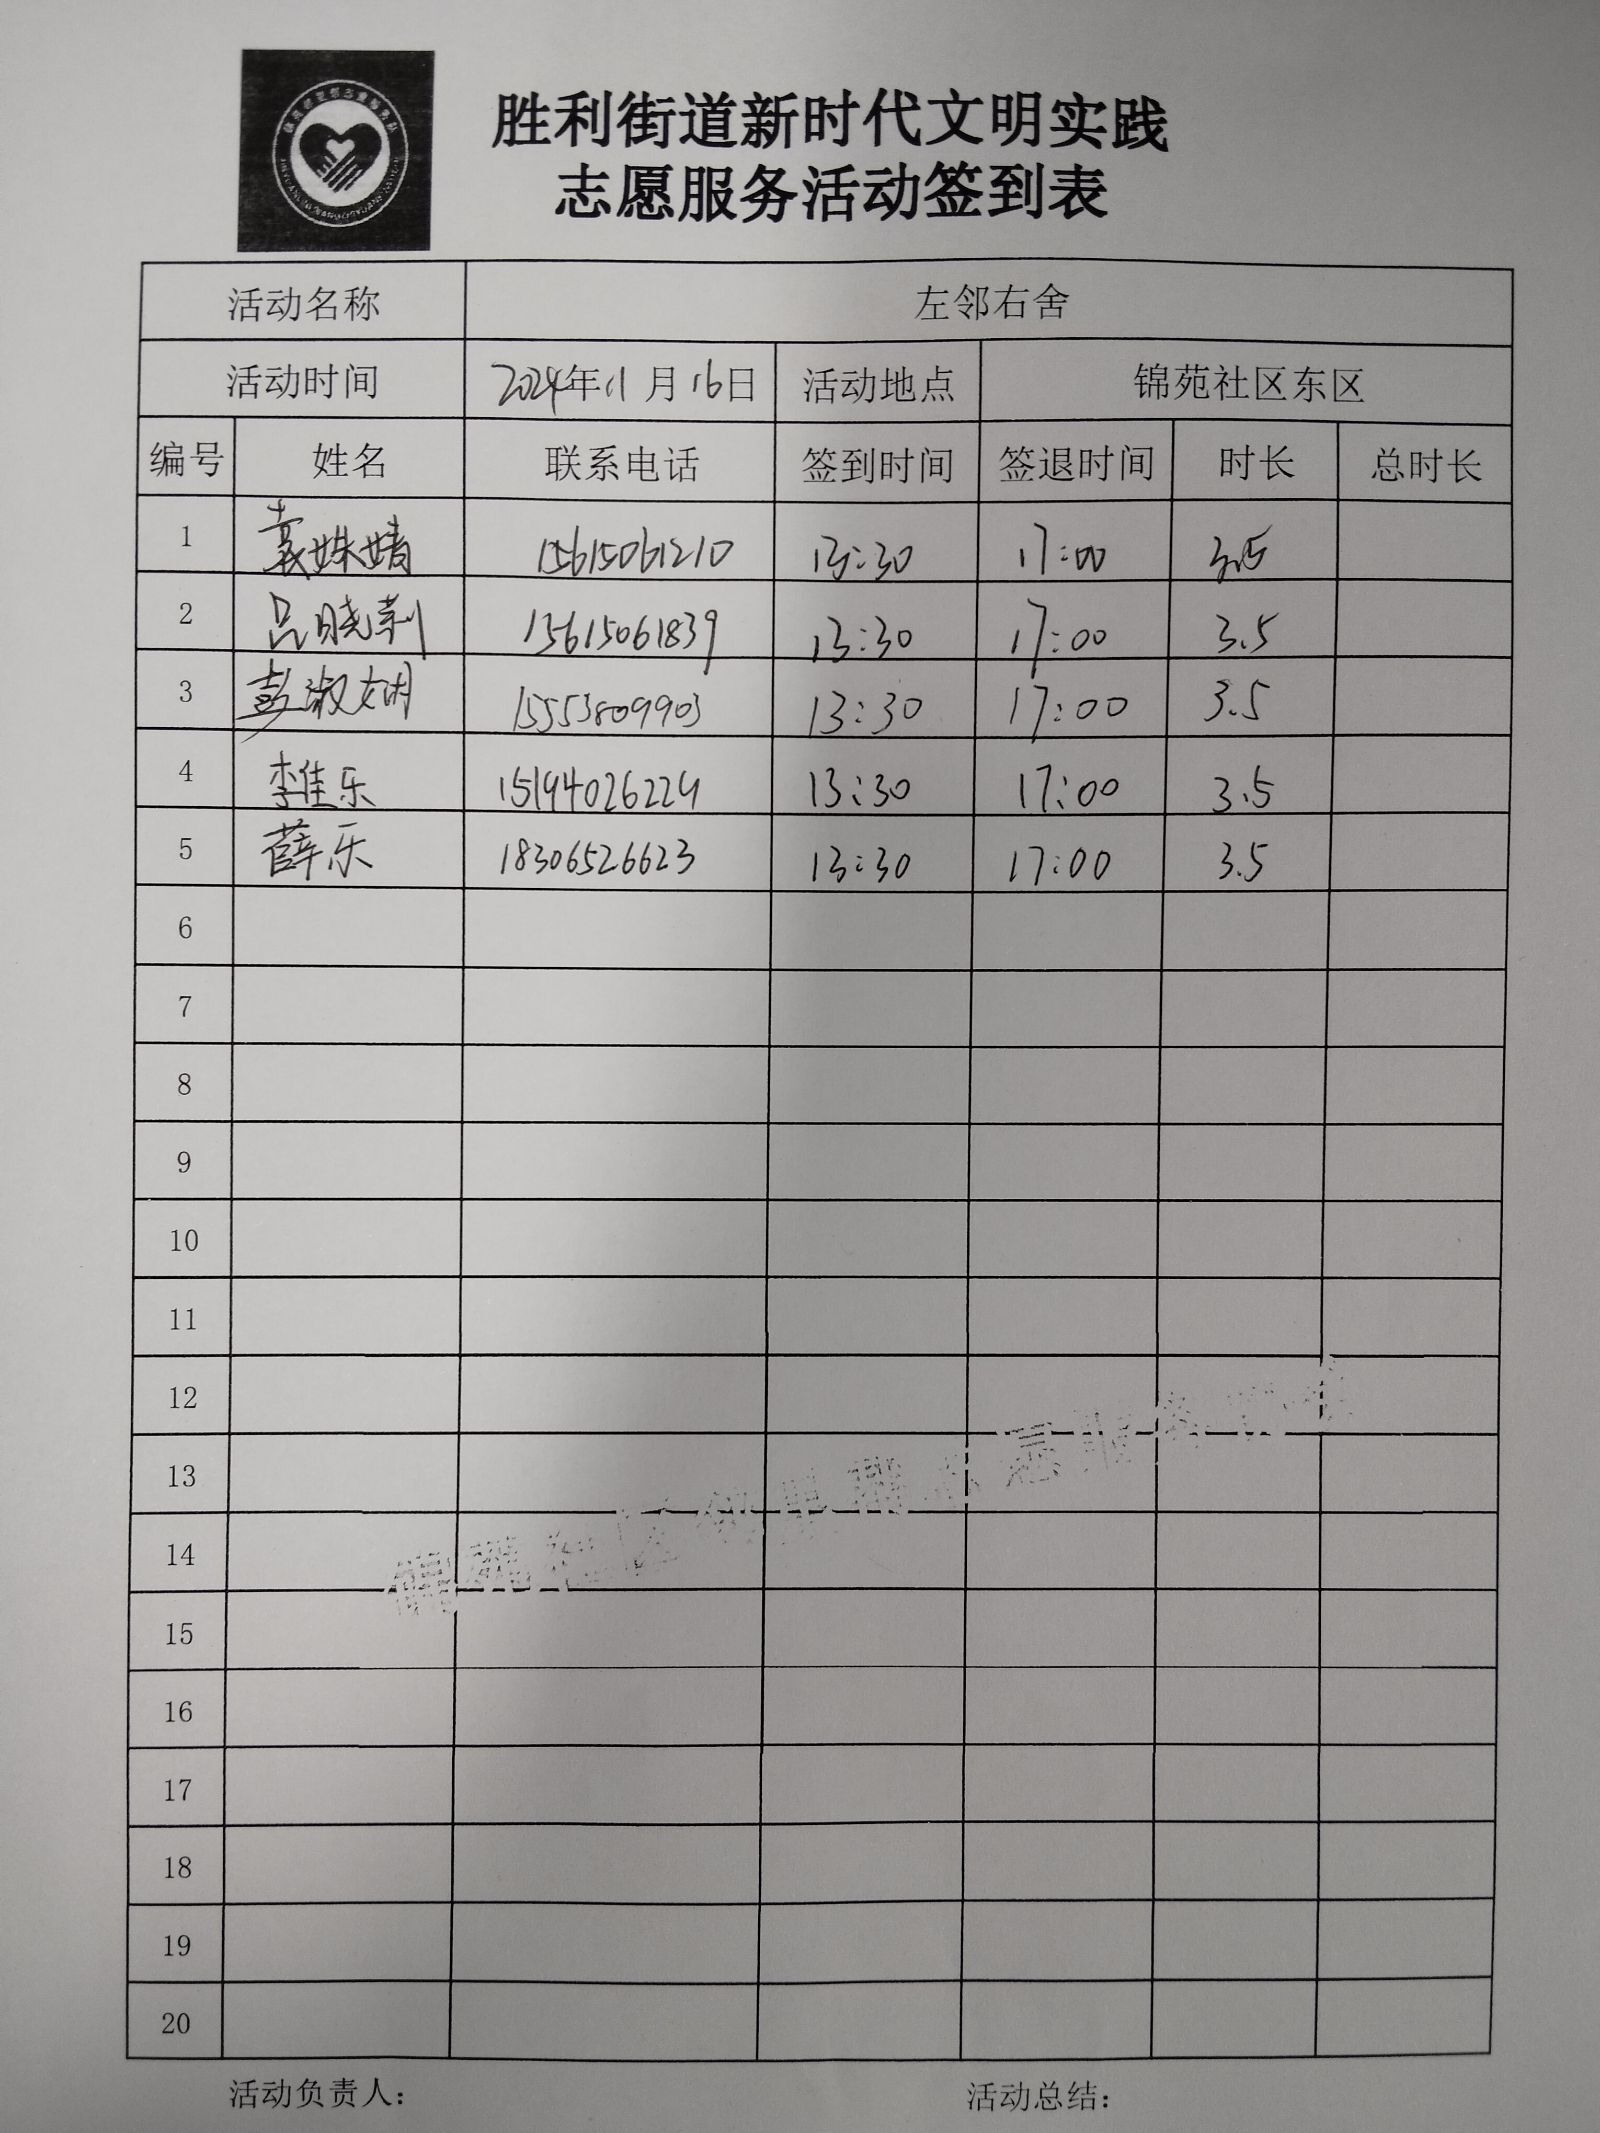 胜利街道新时代文明实践
志愿服务活动签到表
活动名称 左邻右舍
活动时间 2024年11月16日 活动地点 锦苑社区东区
编号 姓名 联系电话 签到时间 签退时间 时长 总时长
1 袁姝婧 15615061210 13:30 17:00 3.5
2 吕晓莉 15615061839 13:30 17:00 3.5
3 彭淑娴 15553809903 13:30 17:00 3.5
4 李佳乐 15194026224 13:30 17:00 3.5
5 薛乐 18306526623 13:30 17:00 3.5
6
7
8
9
10
11
12
13
14
15
16
17
18
19
20
活动负责人： 活动总结：